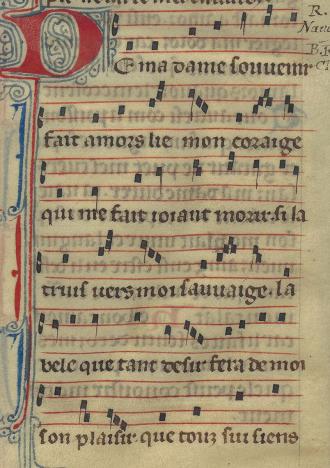 De ma dame souvenir
fait amors lie mon coraige
qui me fait ioiant morir. si la
truis vers moi sauvaige. la
bele que tant desir fera de moi
son plaisir. que touz sui siens